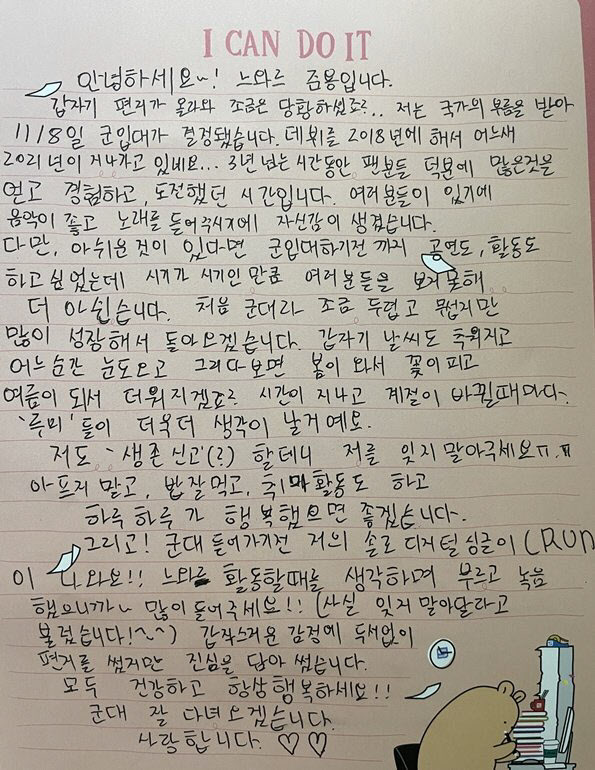 I CAN DO IT
안녕하세요~! 느와르 준용입니다.
갑자기 편지가 올라와 조금은 당황하셨죠?.. 저는 국가의 부름을 받아
11/8일 군입대가 결정됐습니다. 데뷔를 2018년에 해서 어느새
2021년이 지나가고 있네요... 3년 넘는 시간동안 팬분들 덕분에 많은것을
얻고 경험하고, 도전했던 시간입니다. 여러분들이 있기에
음악이 좋고 노래를 들어주시기에 자신감이 생겼습니다.
다만, 아쉬운 것이 있다면 군입대하기전 까지 공연도, 활동도
하고 싶었는데 시기가 시기인 만큼 여러분들을 보지 못해
더 아쉽습니다. 처음 군대라 조금 두렵고 무섭지만
많이 성장해서 돌아오겠습니다. 갑자기 날씨도 추워지고
어느순간 눈도오고 그러다보면 봄이 와서 꽃이 피고
여름이 되서 더워지겠죠? 시간이 지나고 계절이 바뀔때마다
'루미'들이 더욱더 생각이 날거예요.
저도 '생존신고'(?) 할테니 저를 잊지 말아주세요ㅠ.ㅠ
아프지 말고, 밥 잘먹고, 취미활동도 하고
하루 하루가 행복했으면 좋겠습니다.
그리고! 군대 들어가기전 저의 솔로 디지털 싱글이 (RUN)
이 나와요!! 느와르 활동할때를 생각하며 부르고 녹음
했으니까~ 많이 들어주세요!! (사실 잊지 말아달라고
불렀습니다!^~^) 갑작스러운 감정에 두서없이
편지를 썼지만 진심을 담아 썼습니다.
모두 건강하고 항상 행복하세요!!
군대 잘 다녀오겠습니다.
사랑합니다. ♡♡